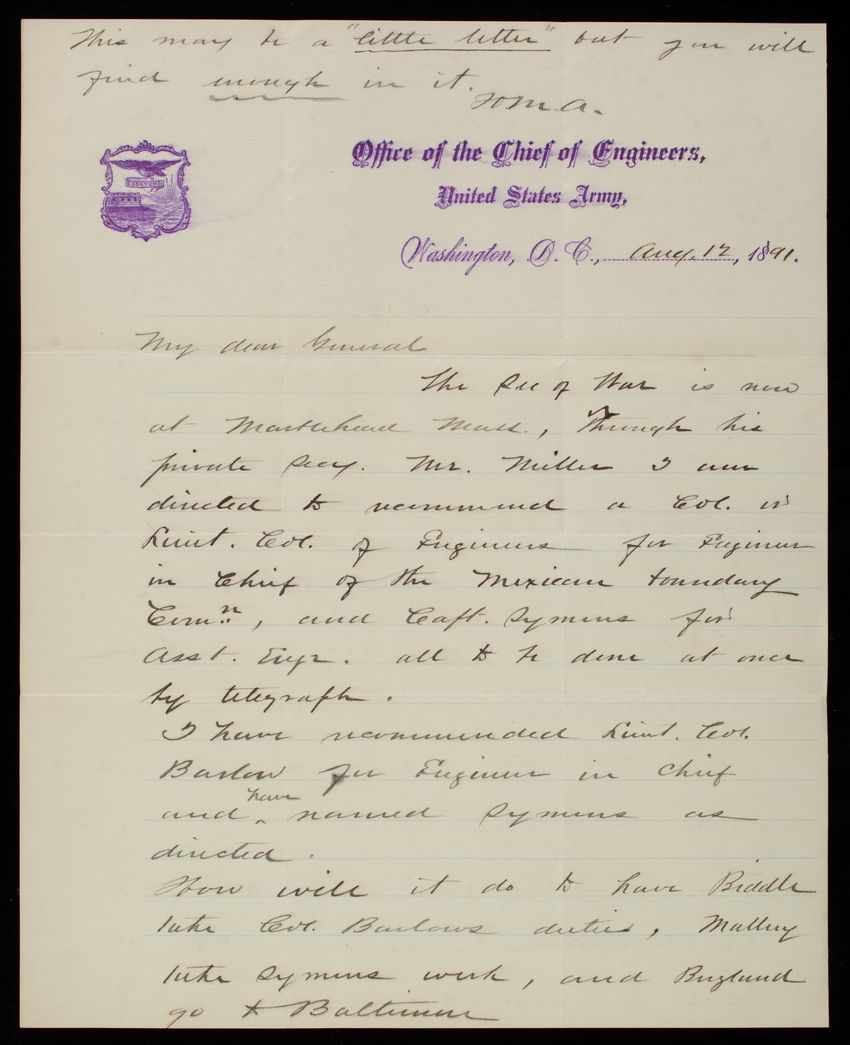 This may be a "little letter" but you will
find enough in it.
H.M.A.
Office of the Chief of Engineers,
United States Army,
Washington, D. C., Aug. 12, 1891.
ESSAYONS
My dear General
The Sec of War is now
at Marblehead Mass., Through his
private Secy. Mr. Miller I am
directed to recommend a Col. or
Lieut. Col. of Engineers for Engineer
in Chief of the Mexican boundary
Comn., and Capt. Symons for
Asst. Engr. all to be done at once
by telegraph.
I have recommended Lieut. Col.
Barlow for Engineer in Chief
and have named Symons as
directed.
How will it do to have Biddle
take Col. Barlows duties, Mallery
take Symons work, and Bixby and
go to Baltimore